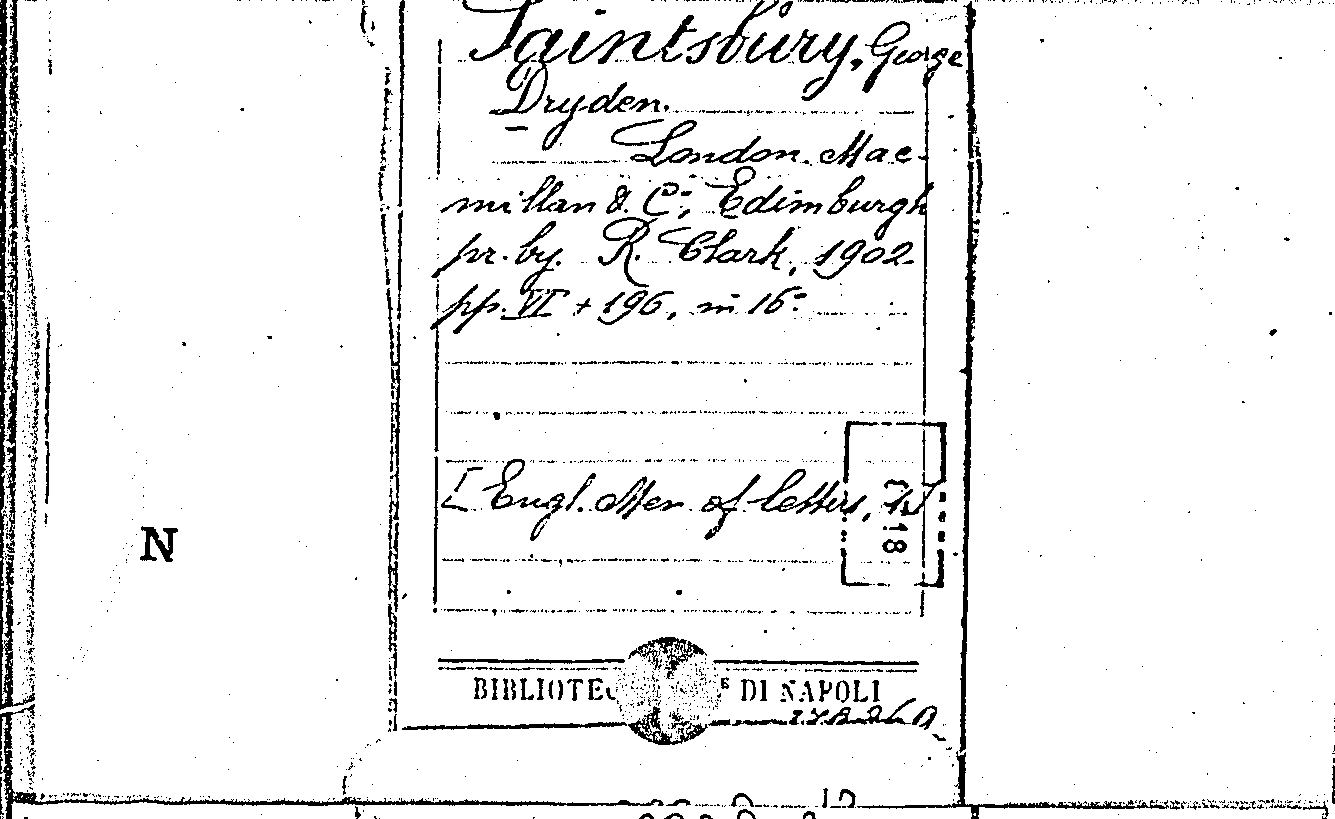 Saintsbury, George
Dryden.
London. Mac-
millan & C.º, Edimburgh
pr. by. R. Clark, 1902
pp. VI + 196, in 16º
[Engl. Men of letters,
18
N
DI NAPOLI